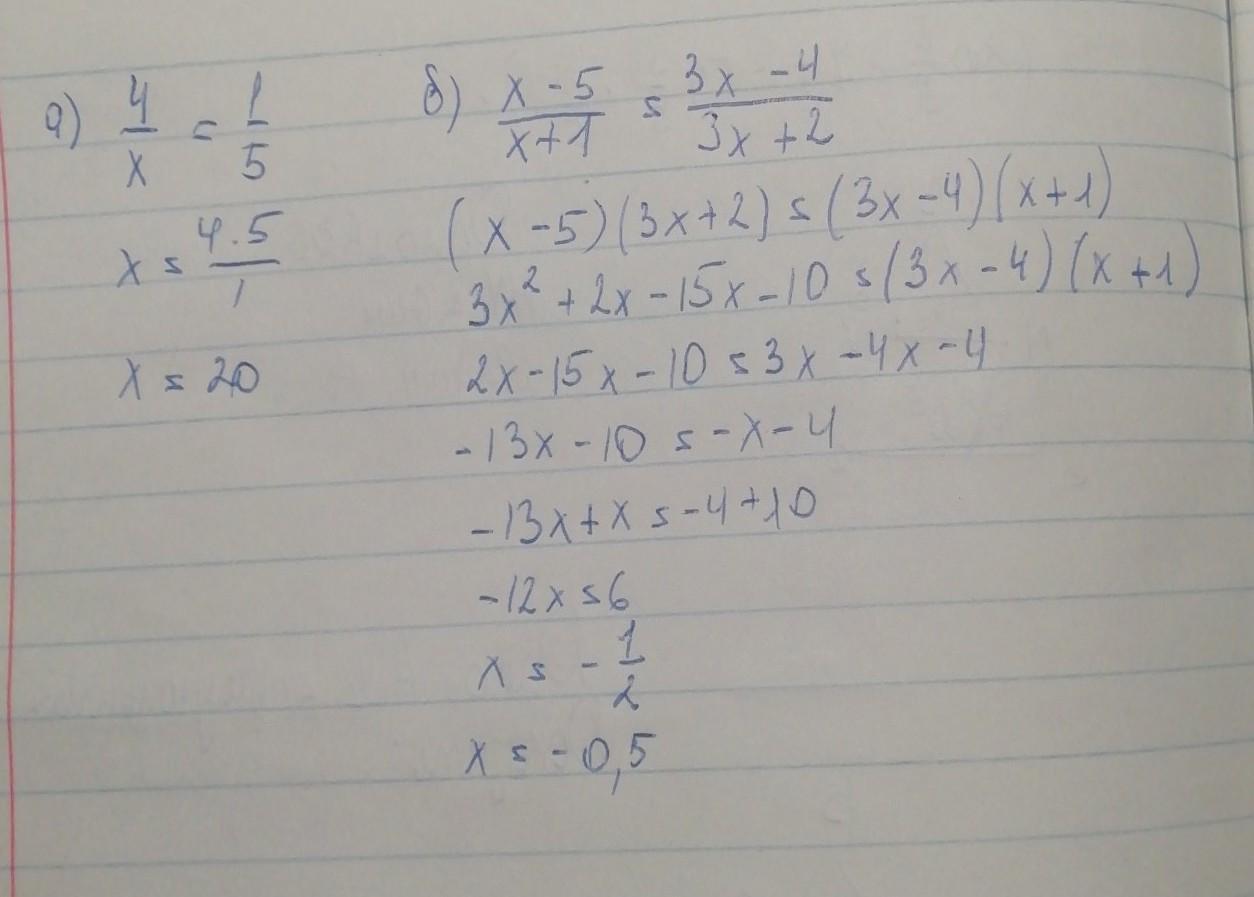 а) 4/x = 1/5
x = 4·5/1
x = 20
б) x-5/x+1 = 3x-4/3x+2
(x-5)(3x+2) = (3x-4)(x+1)
3x² + 2x - 15x - 10 = (3x-4)(x+1)
2x - 15x - 10 = 3x - 4x - 4
-13x - 10 = -x - 4
-13x + x = -4 + 10
-12x = 6
x = -1/2
x = -0,5